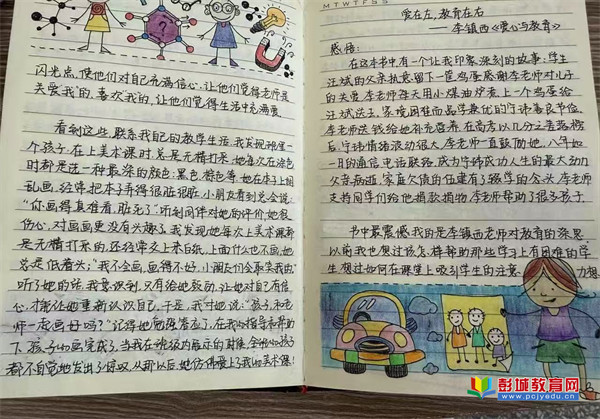 闪光点,使他们对自己充满信心,让他们觉得老师是
关爱"我"的,喜欢"我"的,让他们觉得生活中充满爱.
看到这些,联系我自己的教学生活,我发现班里一
个孩子在上美术课时总是无精打采,她每次在涂色
时都是选一种最深的颜色:黑色、棕色等,她在本子上
乱画,经常把本子弄得很脏很脏,小朋友看到总会说:
"你画得真难看,脏死了"听到同伴对她的评价,她很
伤心,对画画更没有兴趣了,我发现她每次上美术课都
是无精打采的,还经常交上来白纸,上面什么也不画,她
总是低着头:"我不会画,画得不好,小朋友们会取笑我的."
听了她的话,我意识到,只有给她鼓励,让她对自己有信
心,才能让她重新认识自己,于是,我对她说:"孩子,和老
师一起画好吗?"记得她勉强答应了,在我的指导和帮助
下,孩子的画完成了,当我在班级内展示的时候,全班的孩子
都不自觉地发出了惊叹,从那以后,她仿佛爱上了我的美术课!
MTWTFSS
爱在左,教育在右
——李镇西《爱心与教育》
感悟:
在这本书中,有一个让我印象深刻的故事:学生
汪斌的父亲执意留下一筐鸡蛋感谢李老师对儿子
的关爱,李老师每天用小煤油炉煮上一个鸡蛋给
汪斌送去;家境困难而品学兼优的宁玮喜良节俭,
李老师送钱给她补充营养,在高考以几分之差落榜
后,宁玮情绪波动很大,李老师一直鼓励她,八年如
一日的通信、电话联络,成为宁玮成功人生的最大动力
父亲病逝,家庭欠债的伍建有了辍学的念头,李老师
支持同学们给他捐款捐物,李老师帮助了很多孩子
书中最震撼我的是李镇西老师对教育的深思,
以前我也想过该怎样帮助那些学习上有困难的学
生,想过如何在课堂上吸引学生的注意力,想
彭城教育网
www.pcjyedu.cn